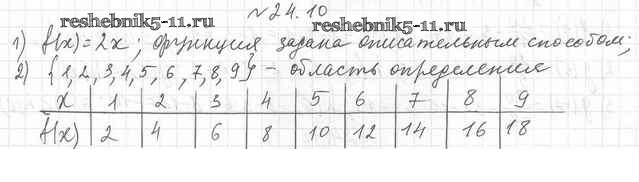 №24.10
reshebnik5-11.ru
1) f(x)=2x; функция задана описательным способом;
2) {1,2,3,4,5,6,7,8,9} – область определения
x 1 2 3 4 5 6 7 8 9
f(x) 2 4 6 8 10 12 14 16 18
reshebnik5-11.ru